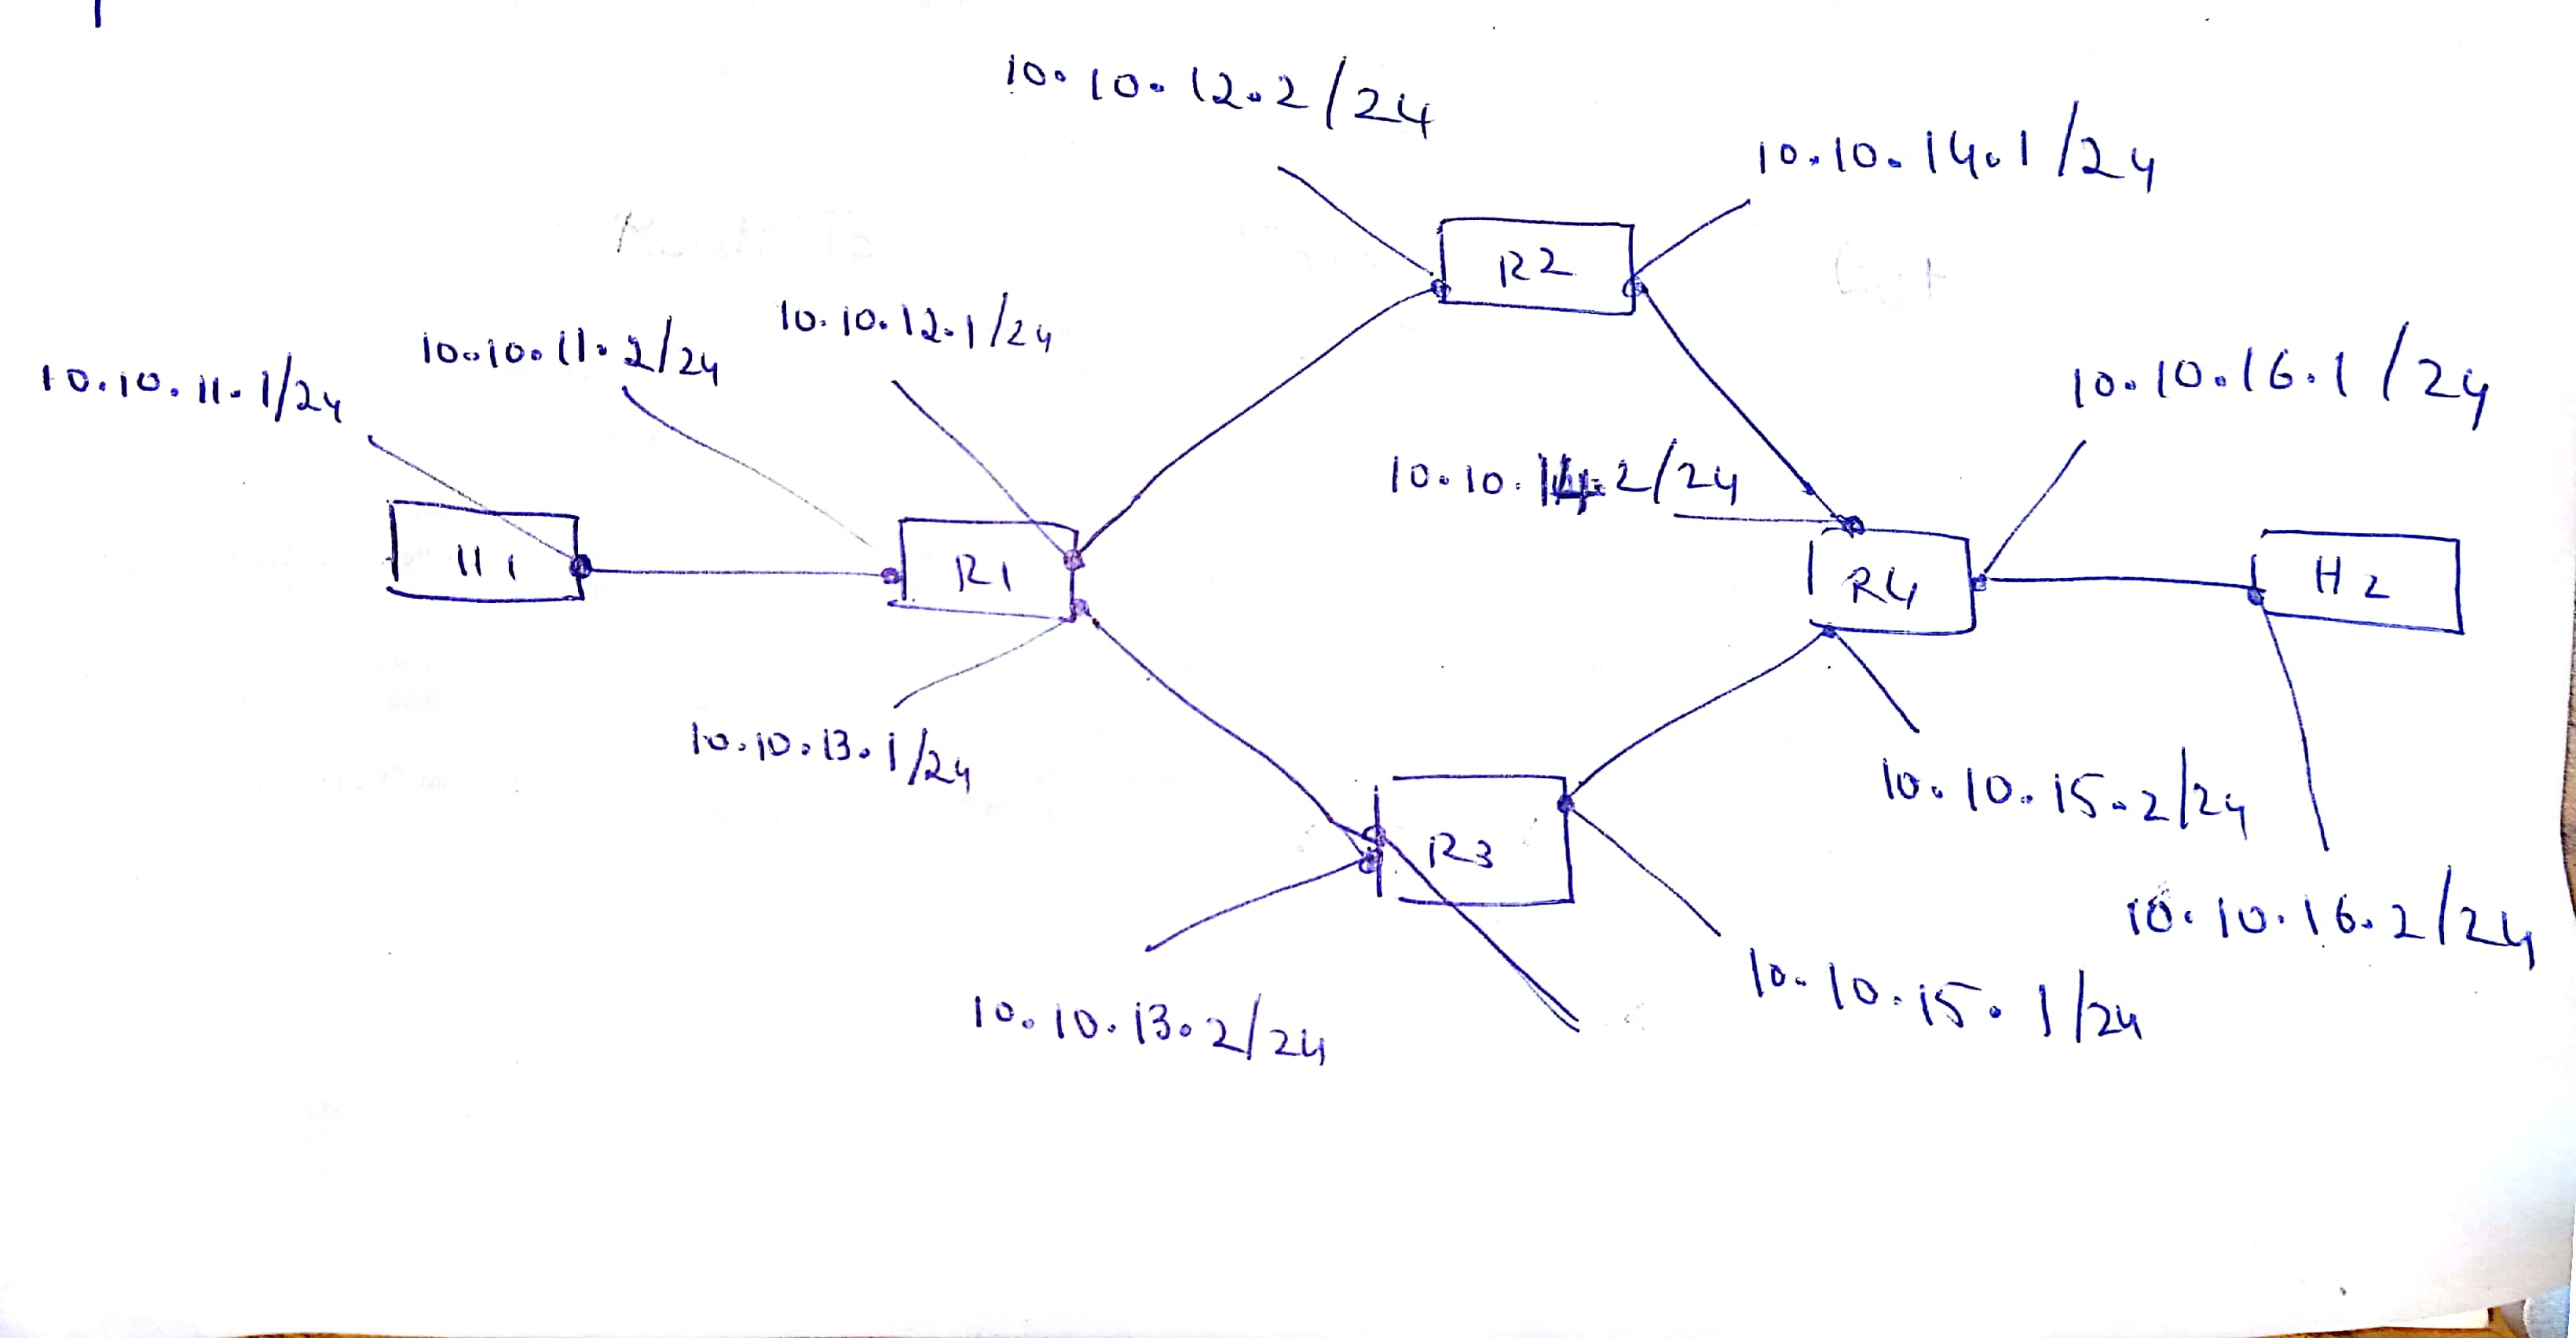 10.10.12.2/24
10.10.14.1/24
R2
10.10.12.1/24
10.10.11.2/24
10.10.11.1/24
10.10.16.1/24
10.10.14.2/24
H1
R1
R4
H2
10.10.13.1/24
10.10.15.2/24
R3
10.10.16.2/24
10.10.15.1/24
10.10.13.2/24